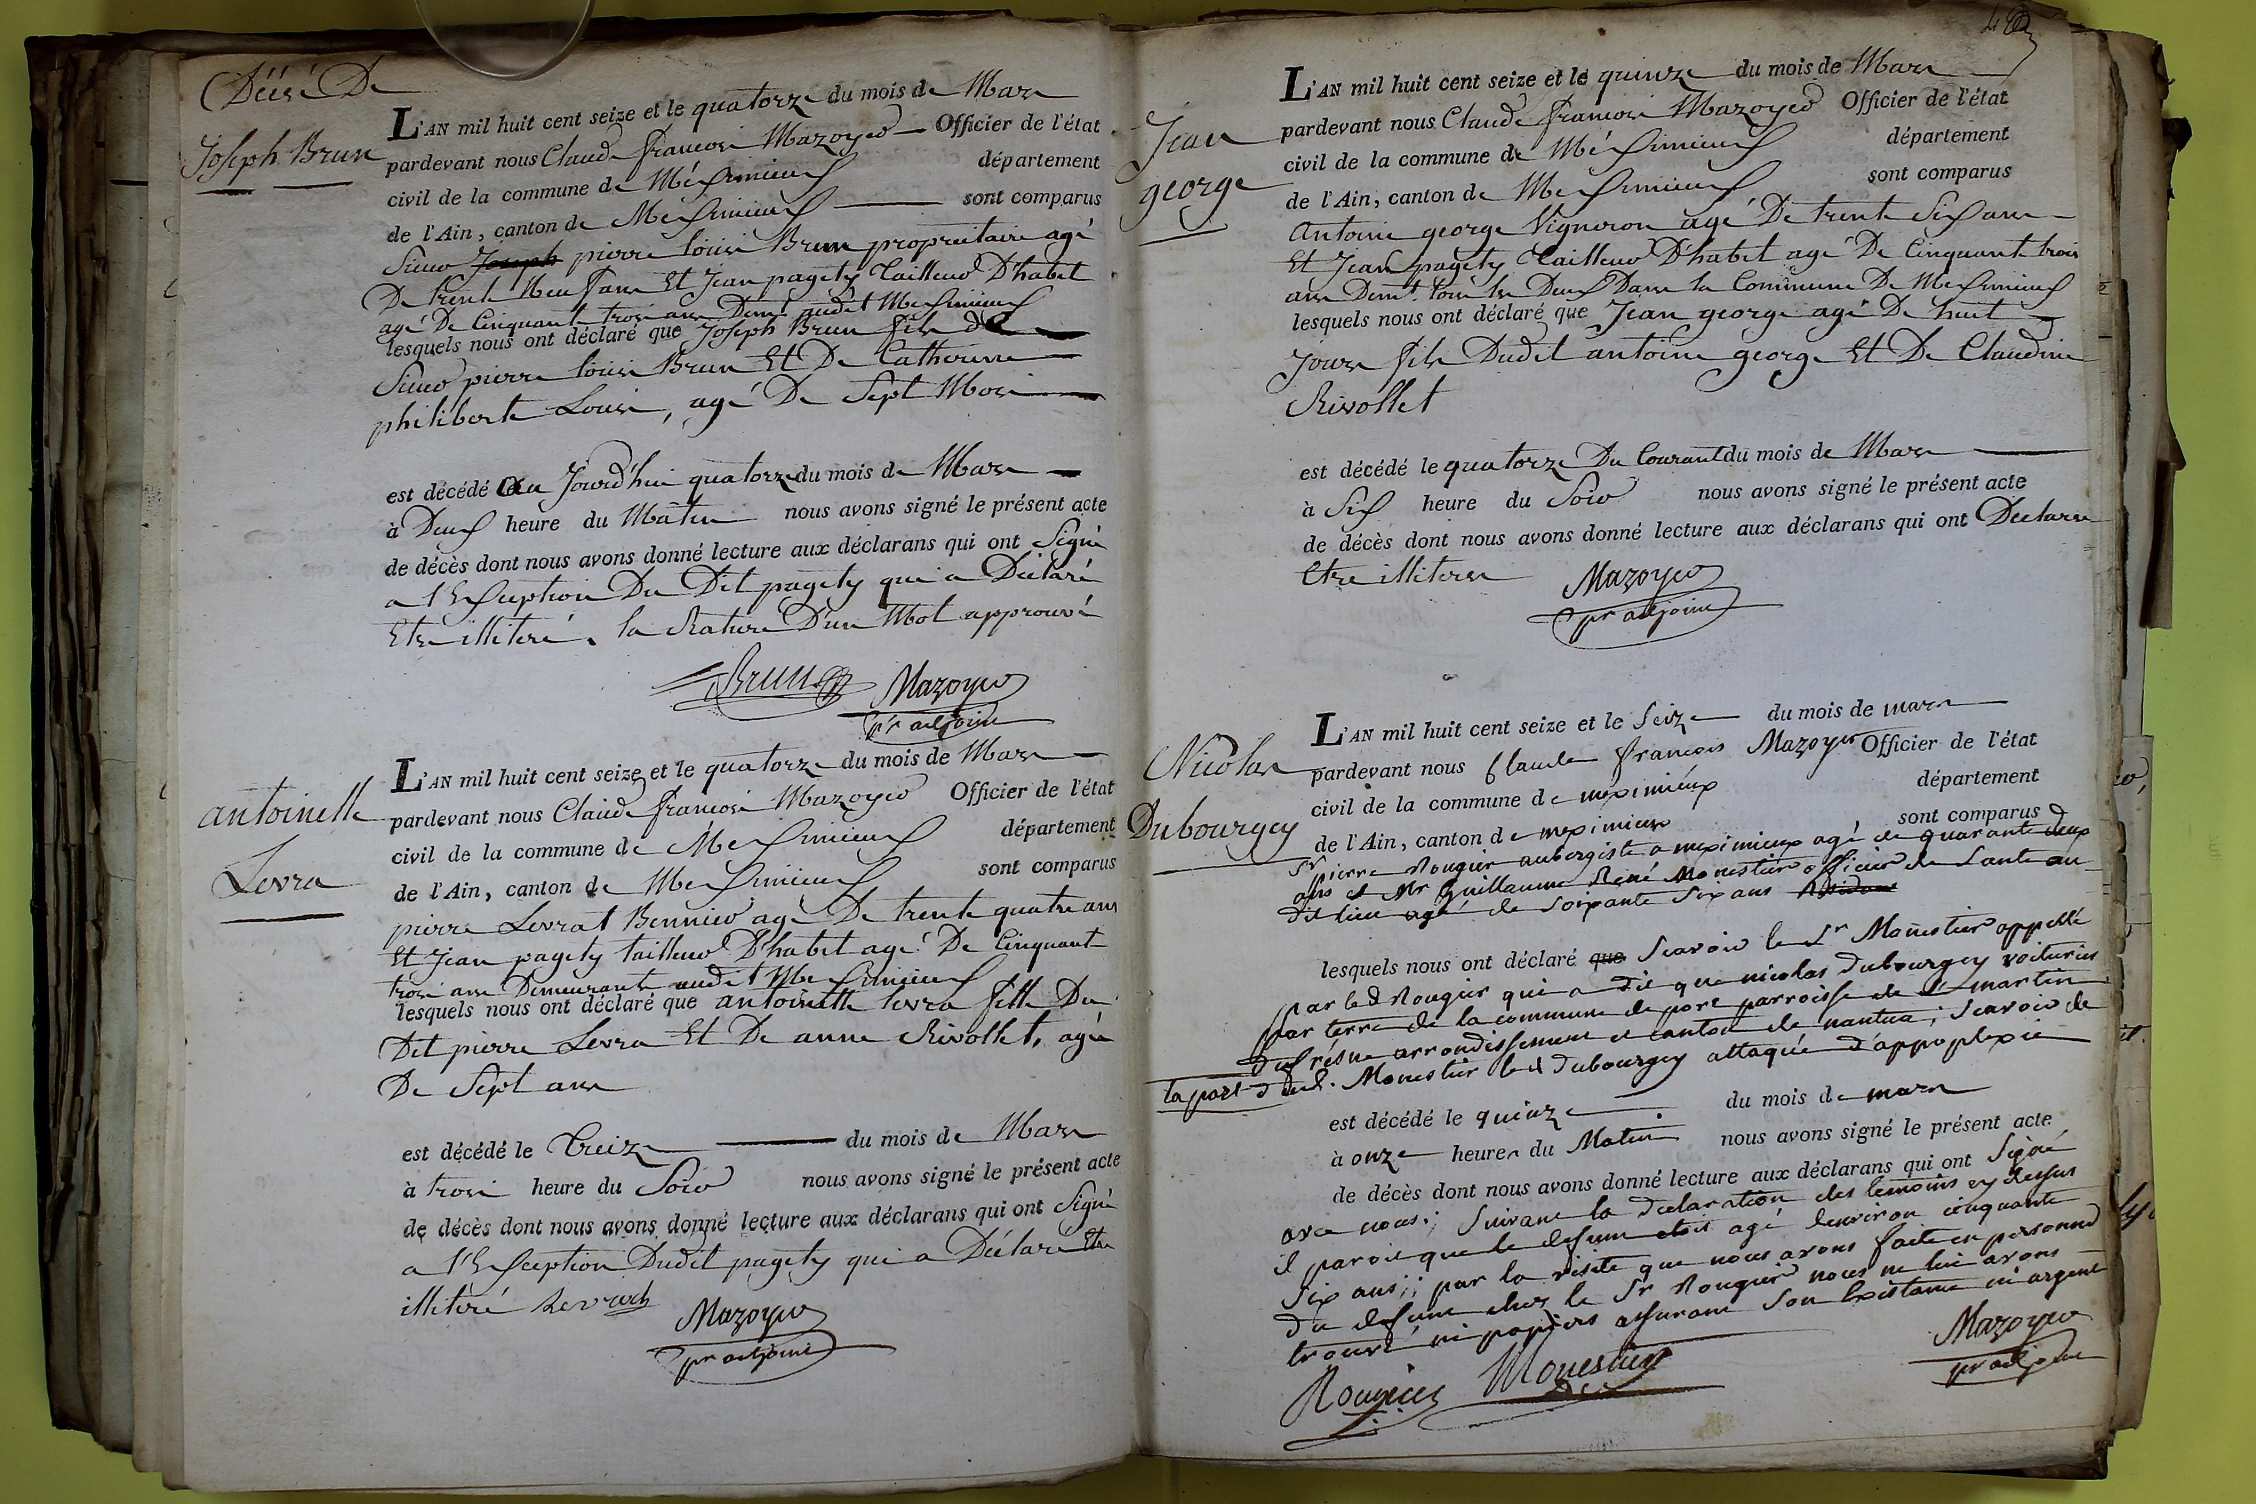 Décès De
Joseph Brun
L'AN mil huit cent seize et le quatorze du mois de Mars
pardevant nous Claude françois Mazoyer Officier de l'état
civil de la commune de Méximieux département
de l'Ain, canton de Meximieux sont comparus
Sieur Joseph pierre louis Brun propriétaire agé
De trente Neuf ans Et Jean pagety Tailleur D'habit
agé De Cinquante trois ans Demt audit Meximieux
lesquels nous ont déclaré que Joseph Brun fils de
Sieur pierre louis Brun Et De Catherine
philiberte Louise, agé De Sept Mois
est décédé au Jourd'hui quatorze du mois de Mars
à Deux heure du Matin nous avons signé le présent acte
de décès dont nous avons donné lecture aux déclarans qui ont Signé
a l'Exception Du Dit pagety qui a Déclaré
Etre illiteré. la Rature D'un Mot approuvé
Brun Mazoyer
pr adjoint
antoinette
Levra
L'AN mil huit cent seize et le quatorze du mois de Mars
pardevant nous Claude françois Mazoyer Officier de l'état
civil de la commune de Méximieux département
de l'Ain, canton de Meximieux sont comparus
pierre Levrat Bennier agé De trente quatre ans
Et Jean pagety tailleur D'habit agé De Cinquante
trois ans Demeurant audit Meximieux
lesquels nous ont déclaré que antoinette levra fille Du
Dit pierre Levra Et De anne Rivollet, agée
De Sept ans
est décédé le Treize du mois de Mars
à trois heure du Soir nous avons signé le présent acte
de décès dont nous avons donné lecture aux déclarans qui ont Signé
a l'Exception Dudit pagety qui a Déclaré Etre
illiteré Levrat Mazoyer
pr adjoint
Jean
george
L'AN mil huit cent seize et le quinze du mois de Mars
pardevant nous Claude françois Mazoyer Officier de l'état
civil de la commune de Méximieux département
de l'Ain, canton de Meximieux sont comparus
Antoine george Vigneron agé De trente Six ans
Et Jean pagety Tailleur D'habit agé De Cinquante trois
ans Demt. tous les Deux Dans la Commune De Meximieux
lesquels nous ont déclaré que Jean george agé De huit
Jours fils Dudit antoine george Et De Claudine
Rivollet
est décédé le quatorze Du Courant du mois de Mars
à Six heure du Soir nous avons signé le présent acte
de décès dont nous avons donné lecture aux déclarans qui ont Déclaré
Etre illiteres Mazoyer
pr adjoint
Nicolas
Dubourgey
L'AN mil huit cent seize et le Seize du mois de mars
pardevant nous Claude françois Mazoyer Officier de l'état
civil de la commune de meximieux département
de l'Ain, canton de meximieux sont comparus
Sr pierre Rougier aubergiste a meximieux agé de quarante deux
ans et Mr Guillaume René Monestier officier de Santé au
dit lieu agé de soixante six ans
lesquels nous ont déclaré que Scavoir le Sr Monestier appellé
par led Rougier qui a dit que nicolas dubourgey voiturier
par terre de la commune de port parroisse de St martin
du frésne arrondissement et canton de nantua; Scavoir de
la part dud. Monestier led dubourgey attaquée d'appoplexie
est décédé le quinze du mois de mars
à onze heures du Matin nous avons signé le présent acte
de décès dont nous avons donné lecture aux déclarans qui ont Signé
avec nous; Suivant la declaration des temoins cy dessus
il paroit que le defunt etoit agé denviron cinquante
Six ans; par la visite que nous avons faite en personne
du defunt chez le Sr Rougier nous ne lui avons
trouvé ni papiers assurant Son Existance ni argent
Rougier Monestier Mazoyer
pr adjoint